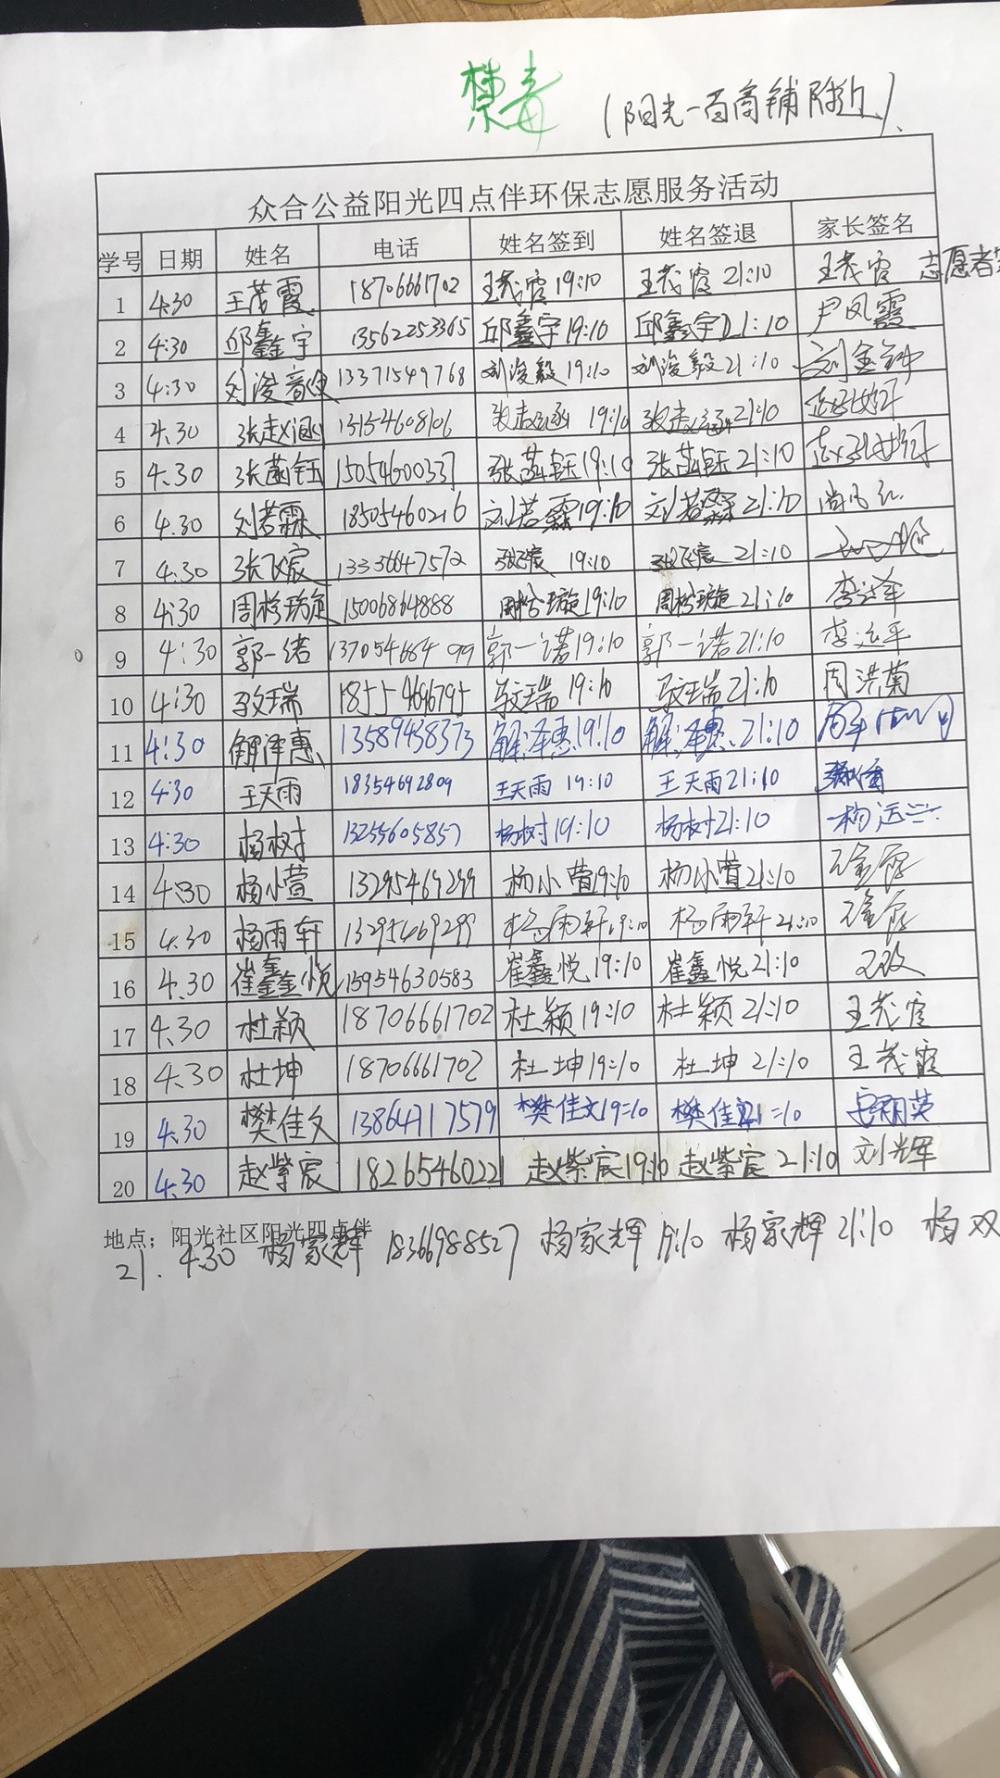 禁毒
(阳光一百商铺附近)
众合公益阳光四点伴环保志愿服务活动
学号 日期 姓名 电话 姓名签到 姓名签退 家长签名
1 4:30 王茂霞 18706661702 王茂霞 19:10 王茂霞 21:10 王茂霞 志愿者
2 4:30 邱鑫宇 13562253365 邱鑫宇 19:10 邱鑫宇 21:10 尹凤霞
3 4:30 刘浚毅 13371549768 刘浚毅 19:10 刘浚毅 21:10 刘金钟
4 4.30 张赵涵 13154608106 张赵涵 19:10 张赵涵 21:10
5 4.30 张菡钰 15054600337 张菡钰 19:10 张菡钰 21:10
6 4.30 刘若霖 18505460216 刘若霖 19:10 刘若霖 21:10 尚凡红
7 4:30 张飞宸 13336647572 张飞宸 19:10 张飞宸 21:10
8 4:30 周桉璇 15006864888 周桉璇 19:10 周桉璇 21:10
9 4:30 郭一诺 13705468499 郭一诺 19:10 郭一诺 21:10 李远平
10 4:30 敬瑞 18554646795 敬瑞 19:10 敬瑞 21:10 周洪菊
11 4:30 解泽惠 13589438373 解泽惠 19:10 解泽惠 21:10
12 4:30 王天雨 18354692809 王天雨 19:10 王天雨 21:10
13 4:30 杨树 13255605857 杨树 19:10 杨树 21:10 杨运兰
14 4:30 杨小萱 13295469299 杨小萱 19:10 杨小萱 21:10
15 4.30 杨雨轩 13295469299 杨雨轩 19:10 杨雨轩 21:10
16 4.30 崔鑫悦 15954630583 崔鑫悦 19:10 崔鑫悦 21:10
17 4.30 杜颖 18706661702 杜颖 19:10 杜颖 21:10 王茂霞
18 4.30 杜坤 18706661702 杜坤 19:10 杜坤 21:10 王茂霞
19 4.30 樊佳文 13864717579 樊佳文 19:10 樊佳文 21:10
20 4.30 赵紫宸 18265460221 赵紫宸 19:10 赵紫宸 21:10 刘光辉
地点：阳光社区阳光四点伴
21. 4.30 杨家辉 18366988527 杨家辉 19:10 杨家辉 21:10 杨双